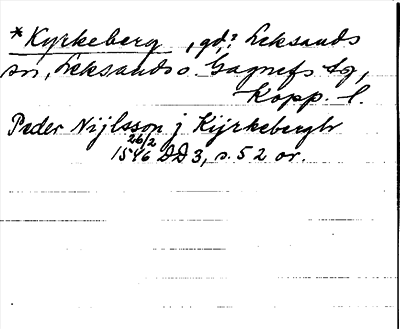 *Kyrkeberg, gd?: Leksands
sn, Leksands o. Gagnefs tg,
Kopp. l.
Peder Nijlsson j Kijrkebergh
26/2
1546 DD 3, s. 52 or.